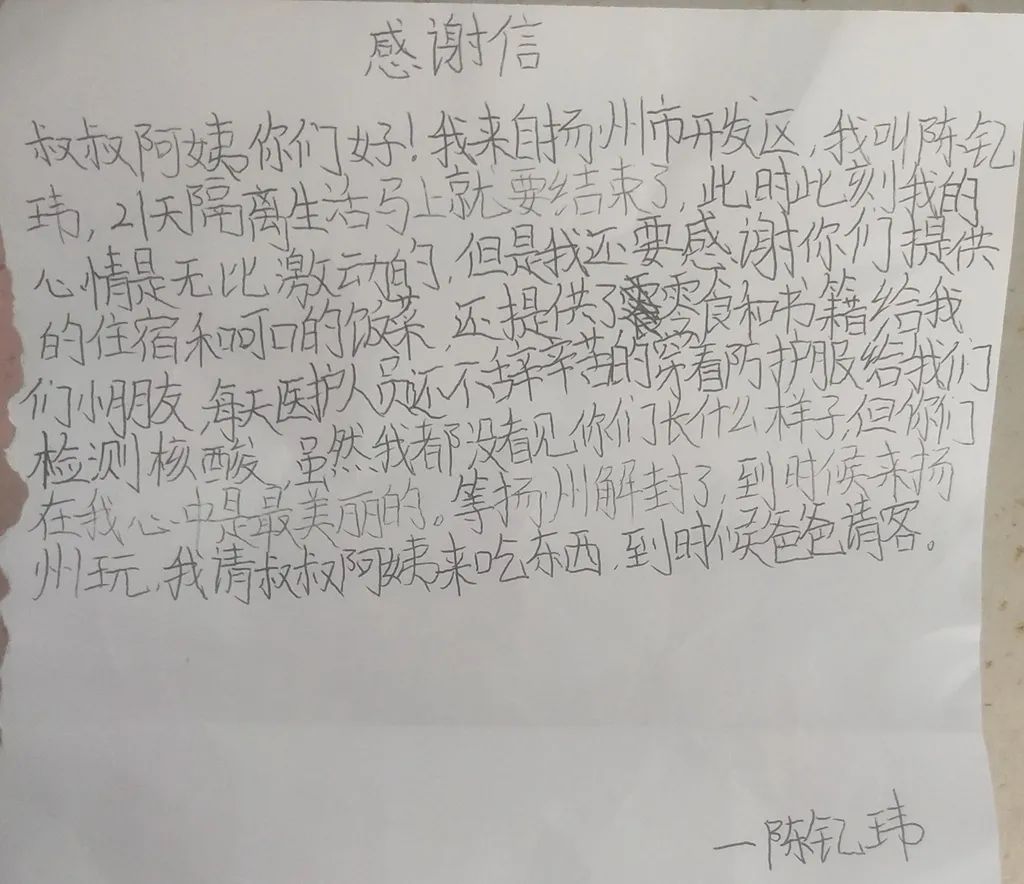 感谢信
叔叔阿姨,你们好!我来自扬州市开发区,我叫陈钇
玮,21天隔离生活马上就要结束了,此时此刻我的
心情是无比激动的,但是我还要感谢你们提供
的住宿和呵口的饭菜,还提供了零食和书籍给我
们小朋友,每天医护人员还不辞辛苦的穿着防护服给我们
检测核酸,虽然我都没看见你们长什么样子,但你们
在我心中是最美丽的。等扬州解封了,到时候来扬
州玩,我请叔叔阿姨来吃东西,到时候爸爸请客。
一陈钇玮